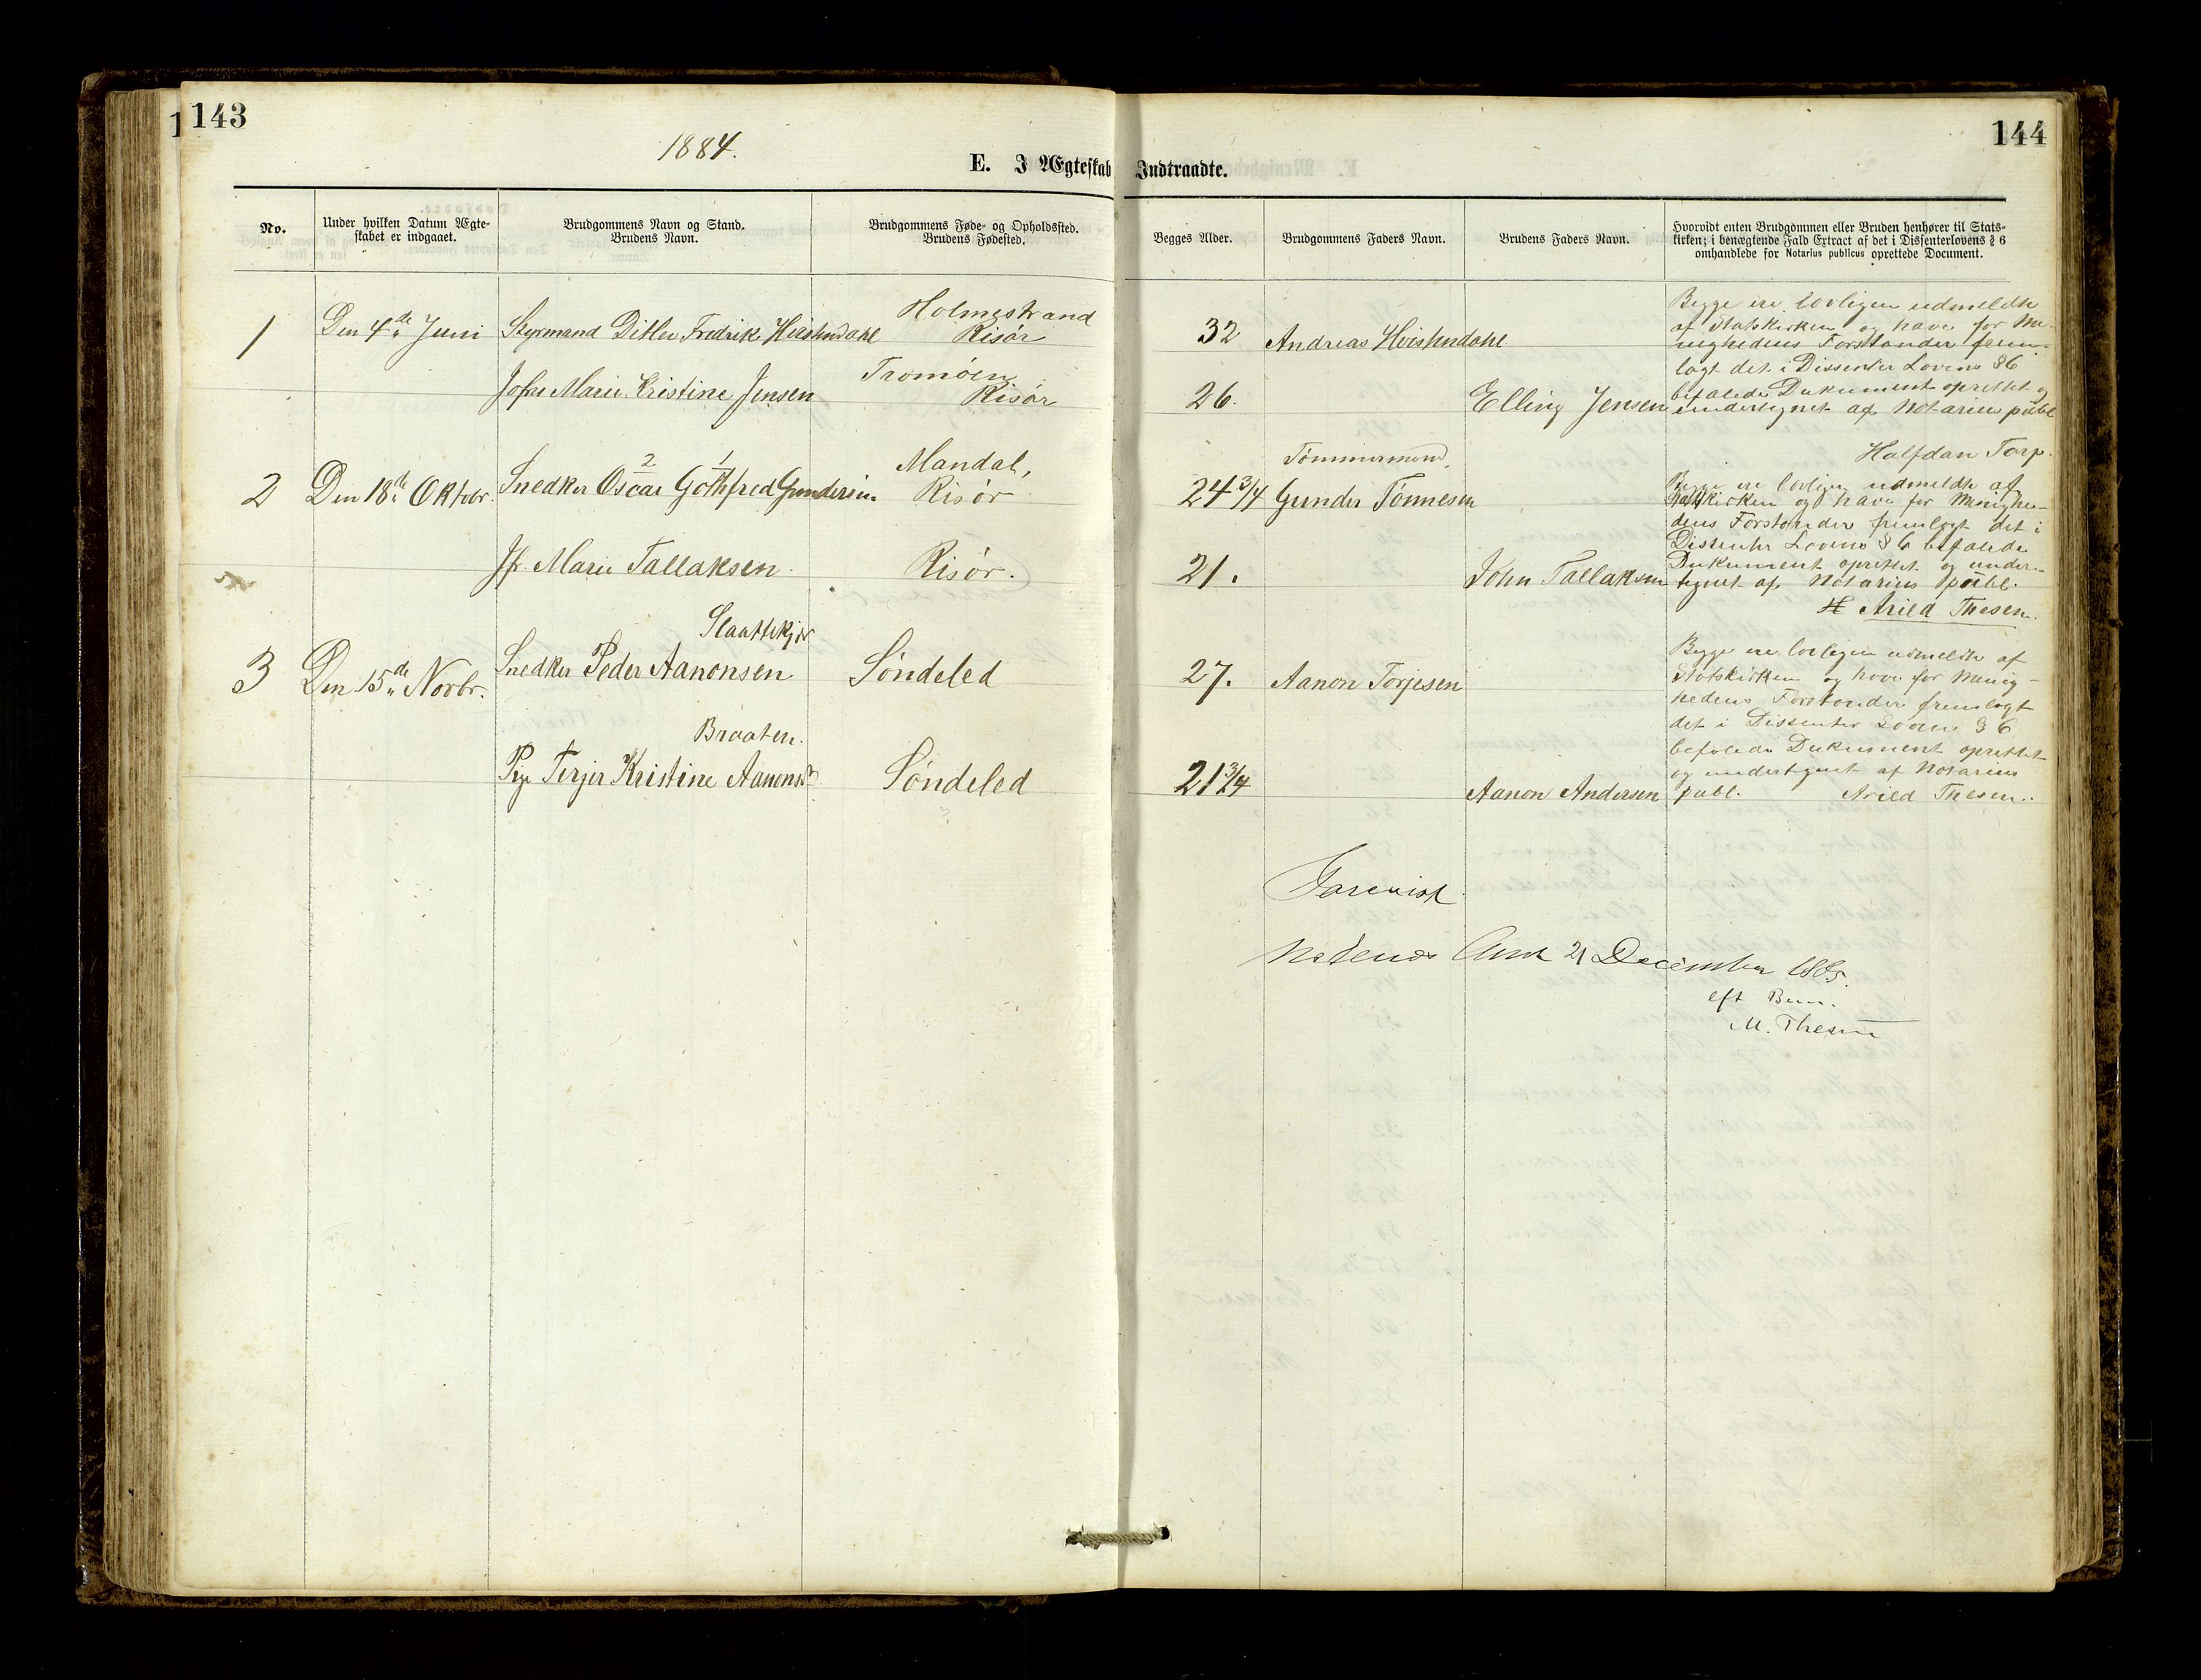 143
144
1884.
E. I Ægteskab Indtraadte.
No.
Under hvilken Datum Ægte-
skabet er indgaaet.
Brudgommens Navn og Stand.
Brudens Navn.
Brudgommens Føde- og Opholdssted.
Brudens Fødested.
Begges Alder.
Brudgommens Faders Navn.
Brudens Faders Navn.
Hvorvidt enten Brudgommen eller Bruden henhører til Stats-
kirken; i benægtende Fald Extract af det i Dissenterlovens § 6
omhandlede for Notarius publicus oprettede Document.
1
Den 4de Juni
Styrmand Ditlev Fredrik Hvistendahl
Holmestrand
Risör
32
Andreas Hvistendahl
Jofru Marie Kristine Jensen
Tromöen
Risör
26.
Elling Jensen
Begge ere lovligen udmeldte
af Statskirken og have for Me-
nighedens Forstander frem-
lagt det i Dissenter Lovens § 6
befalede Dukument oprettet og
undertegnet af Notarius publ
Halfdan Torp.
2
Den 18de Oktobr.
2 1
Snedker Oscar Gothfred Gundersen
Mandal,
Risör
24 3/4
Tömmermand,
Gunder Tönnesen
Jfr. Marie Tallaksen.
Risör.
21.
John Tallaksen
Begge ere lovligen udmeldte af
Statskirken og have for Menighe-
dens Forstander fremlagt det i
Dissenter Lovens § 6 befalede
Dukument oprettet og under-
tegnet af Notarius publ.
H Arild Thesen.
3
Den 15de Novbr.
Slaattekjær
Snedker Peder Aanonsen
Söndeled
27.
Aanon Torjesen
Braaten.
Pige Terjer Kristine Aanonsdr
Söndeled
21 3/4
Aanon Andersen
Begge ere lovligen udmeldte af
Statskirken og have for Menig-
hedens Forstander fremlagt
det i Dissenter Loven § 6
befalede Dukument oprettet
og undertegnet af Notarius
publ. Arild Thesen.
Forevist
Nedenæs Amt 21 December 1885.
eft Bem.
M. Thesen